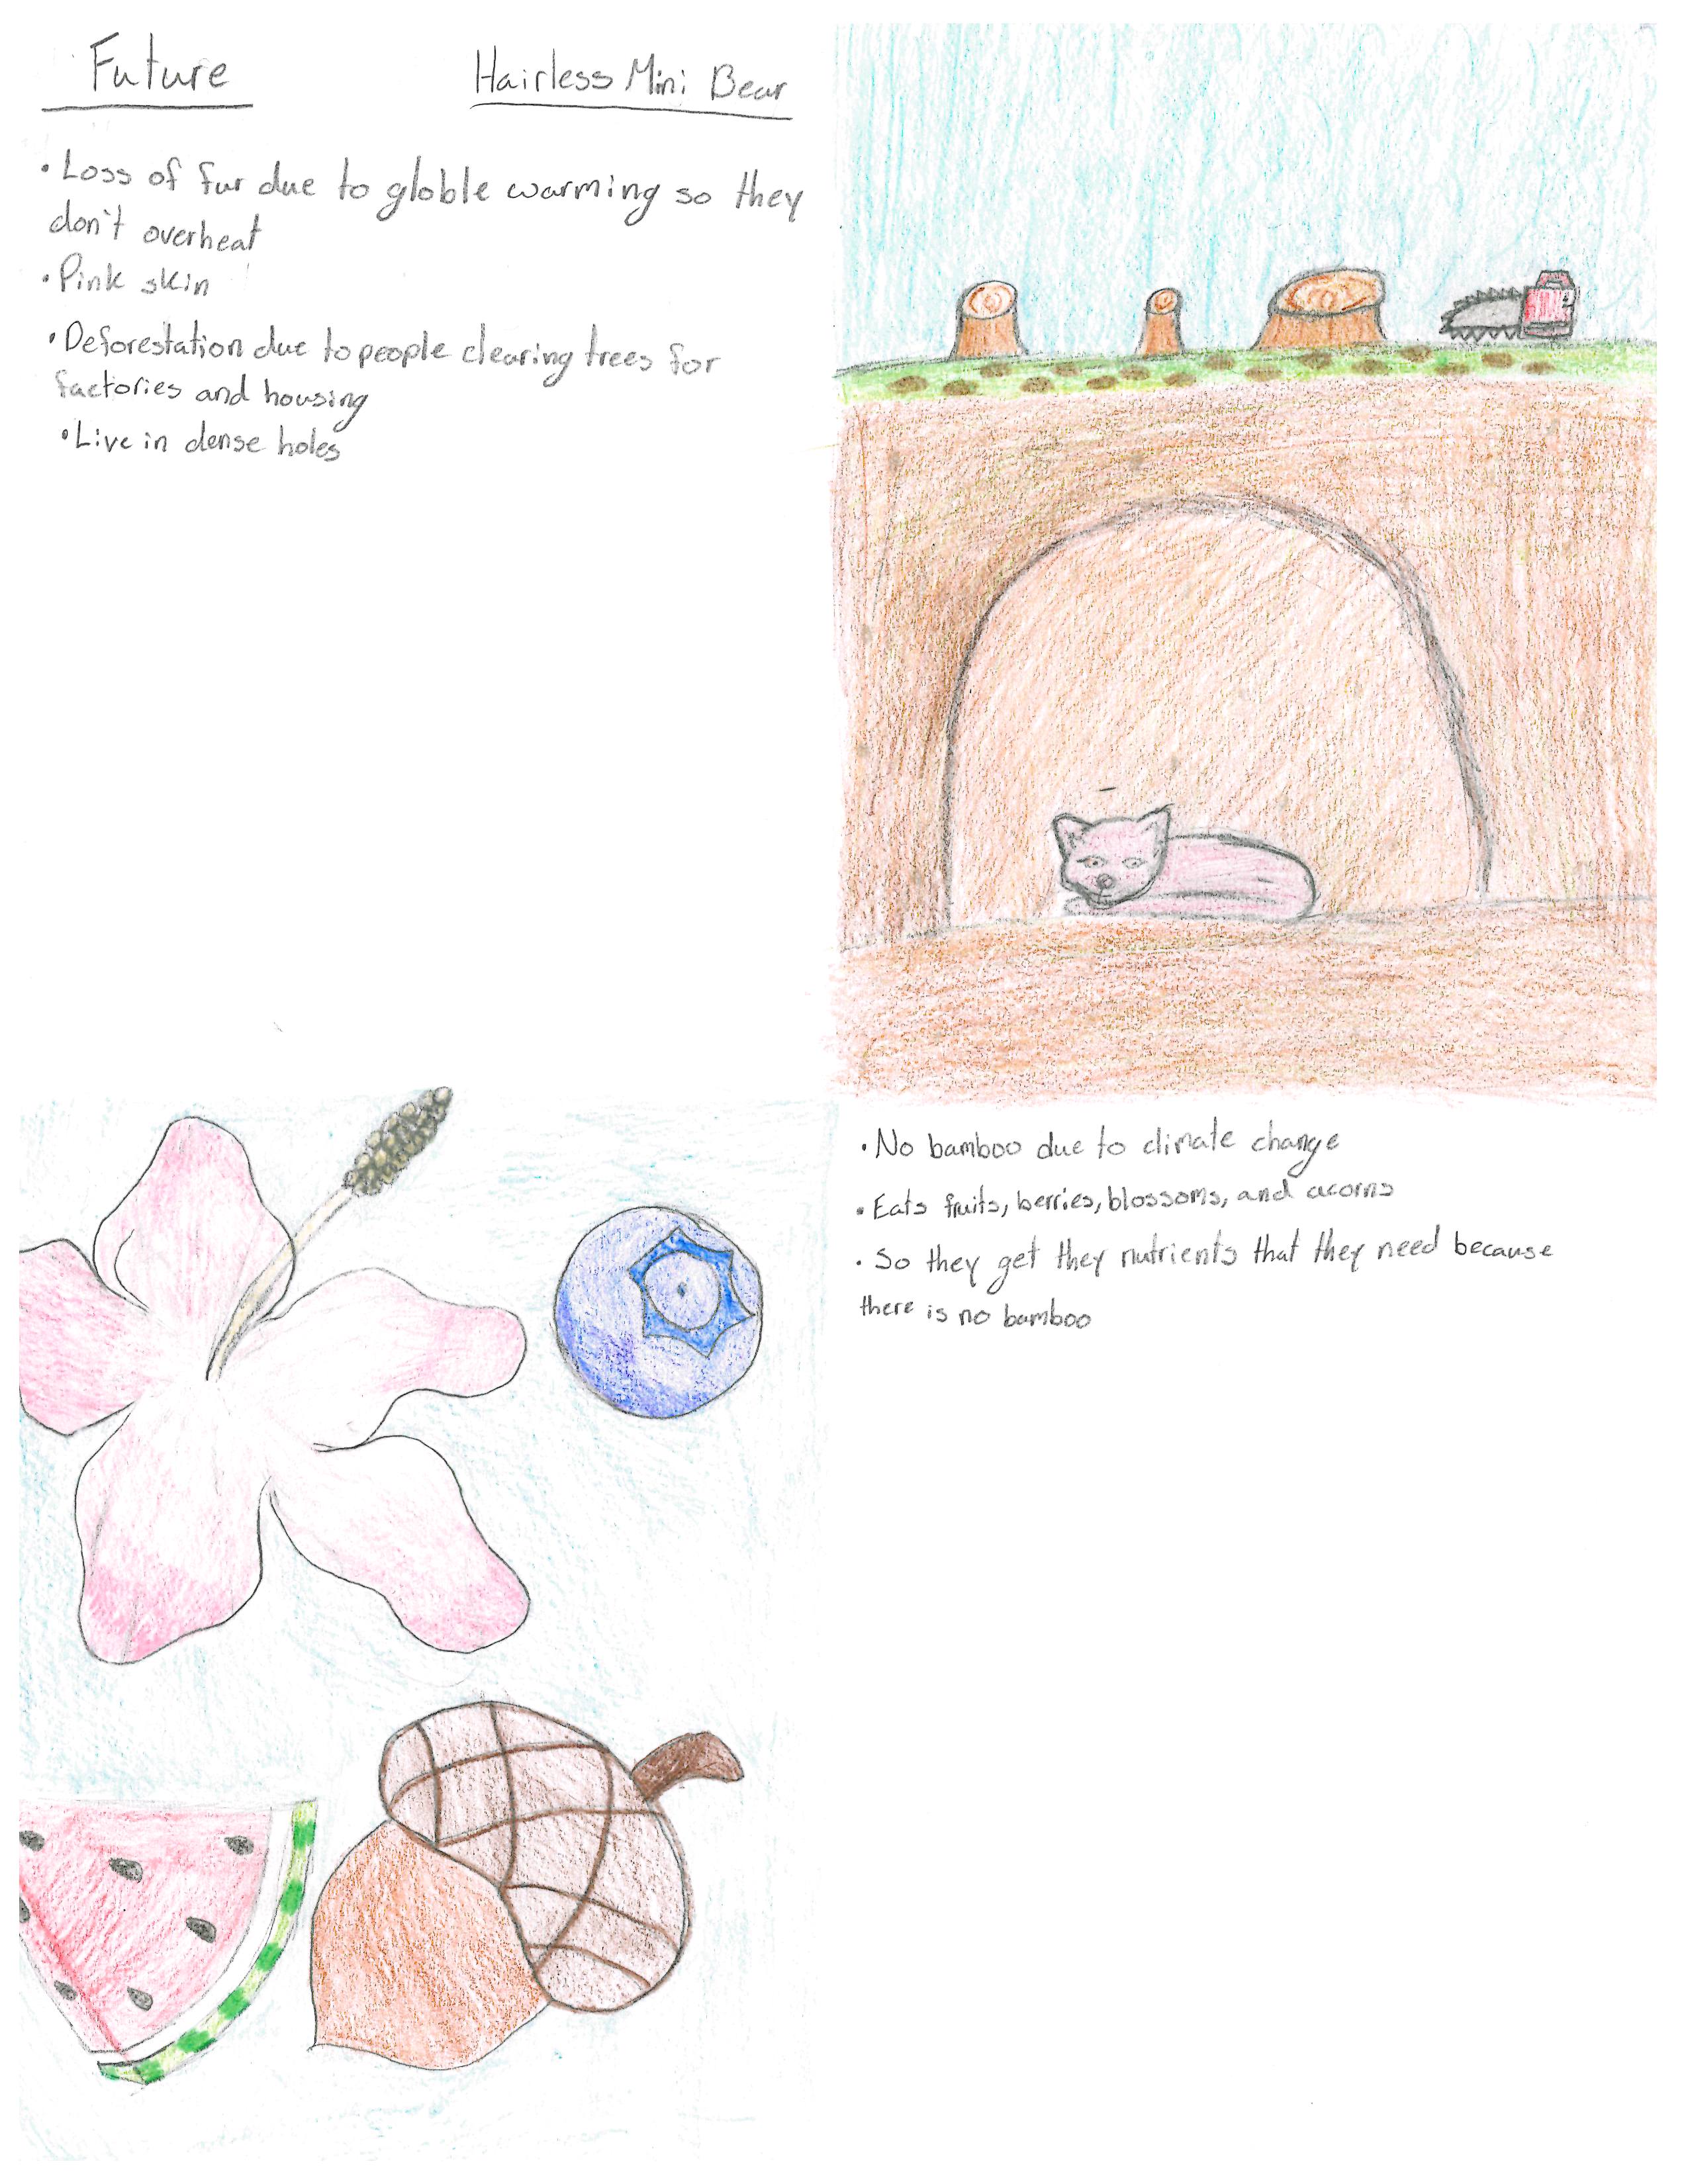 Future
Hairless Mini Bear
• Loss of fur due to globle warming so they
don't overheat
• Pink skin
• Deforestation due to people clearing trees for
factories and housing
• Live in dense holes
• No bamboo due to climate change
• Eats fruits, berries, blossoms, and acorns
• So they get they nutrients that they need because
there is no bamboo